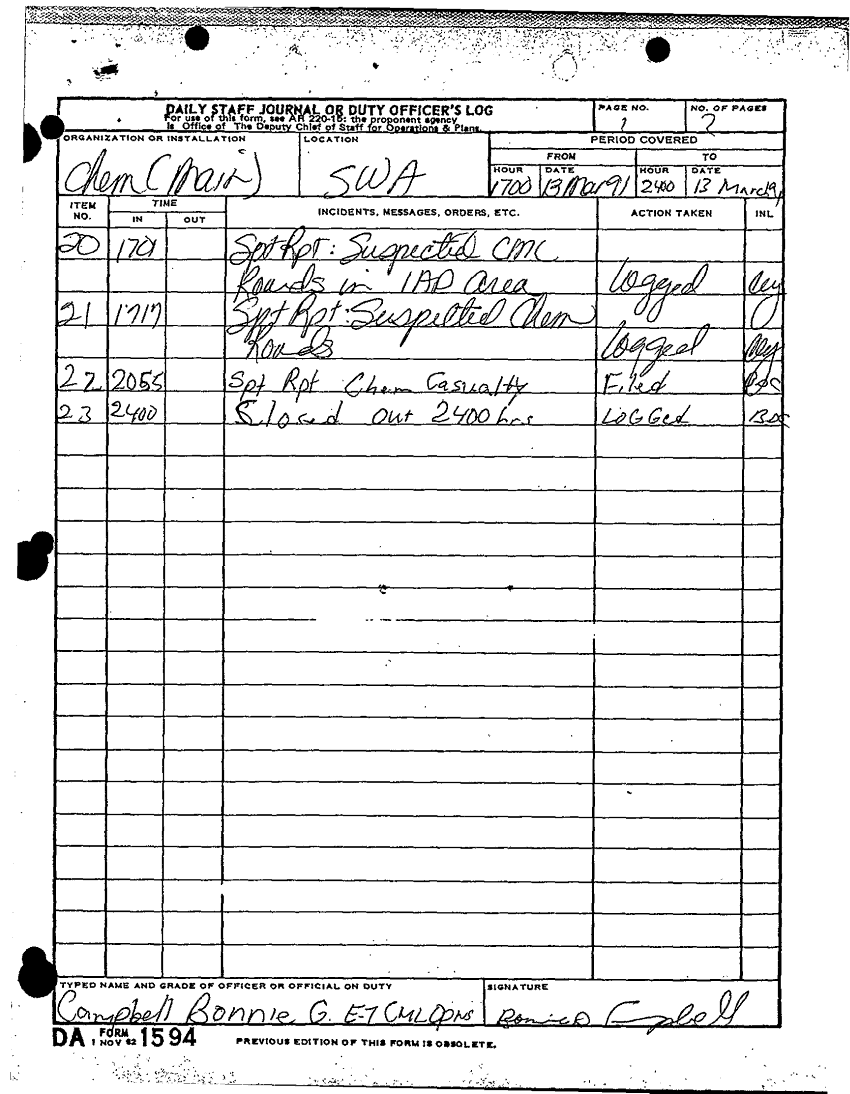 DAILY STAFF JOURNAL OR DUTY OFFICER'S LOG
For use of this form, see AR 220-15; the proponent agency
is Office of The Deputy Chief of Staff for Operations & Plans.
PAGE NO.
1
NO. OF PAGES
2
ORGANIZATION OR INSTALLATION
Chem (Main)
LOCATION
SWA
PERIOD COVERED
FROM
TO
HOUR
1700
DATE
13 Mar 91
HOUR
2400
DATE
13 March 91
ITEM NO.
TIME
IN
OUT
INCIDENTS, MESSAGES, ORDERS, ETC.
ACTION TAKEN
INL
20 1701 Spt Rpt: Suspected CMC
Rounds in IAD area Logged
21 1717 Spt Rpt: Suspected Chem
Rounds Logged
22 2055 Spt Rpt Chem Casualty Filed
23 2400 Closed out 2400 hrs LOGGed
TYPED NAME AND GRADE OF OFFICER OR OFFICIAL ON DUTY
Campbell Bonnie G. E-7 CML Opns
SIGNATURE
Campbell
DA FORM 1 NOV 62 1594
PREVIOUS EDITION OF THIS FORM IS OBSOLETE.